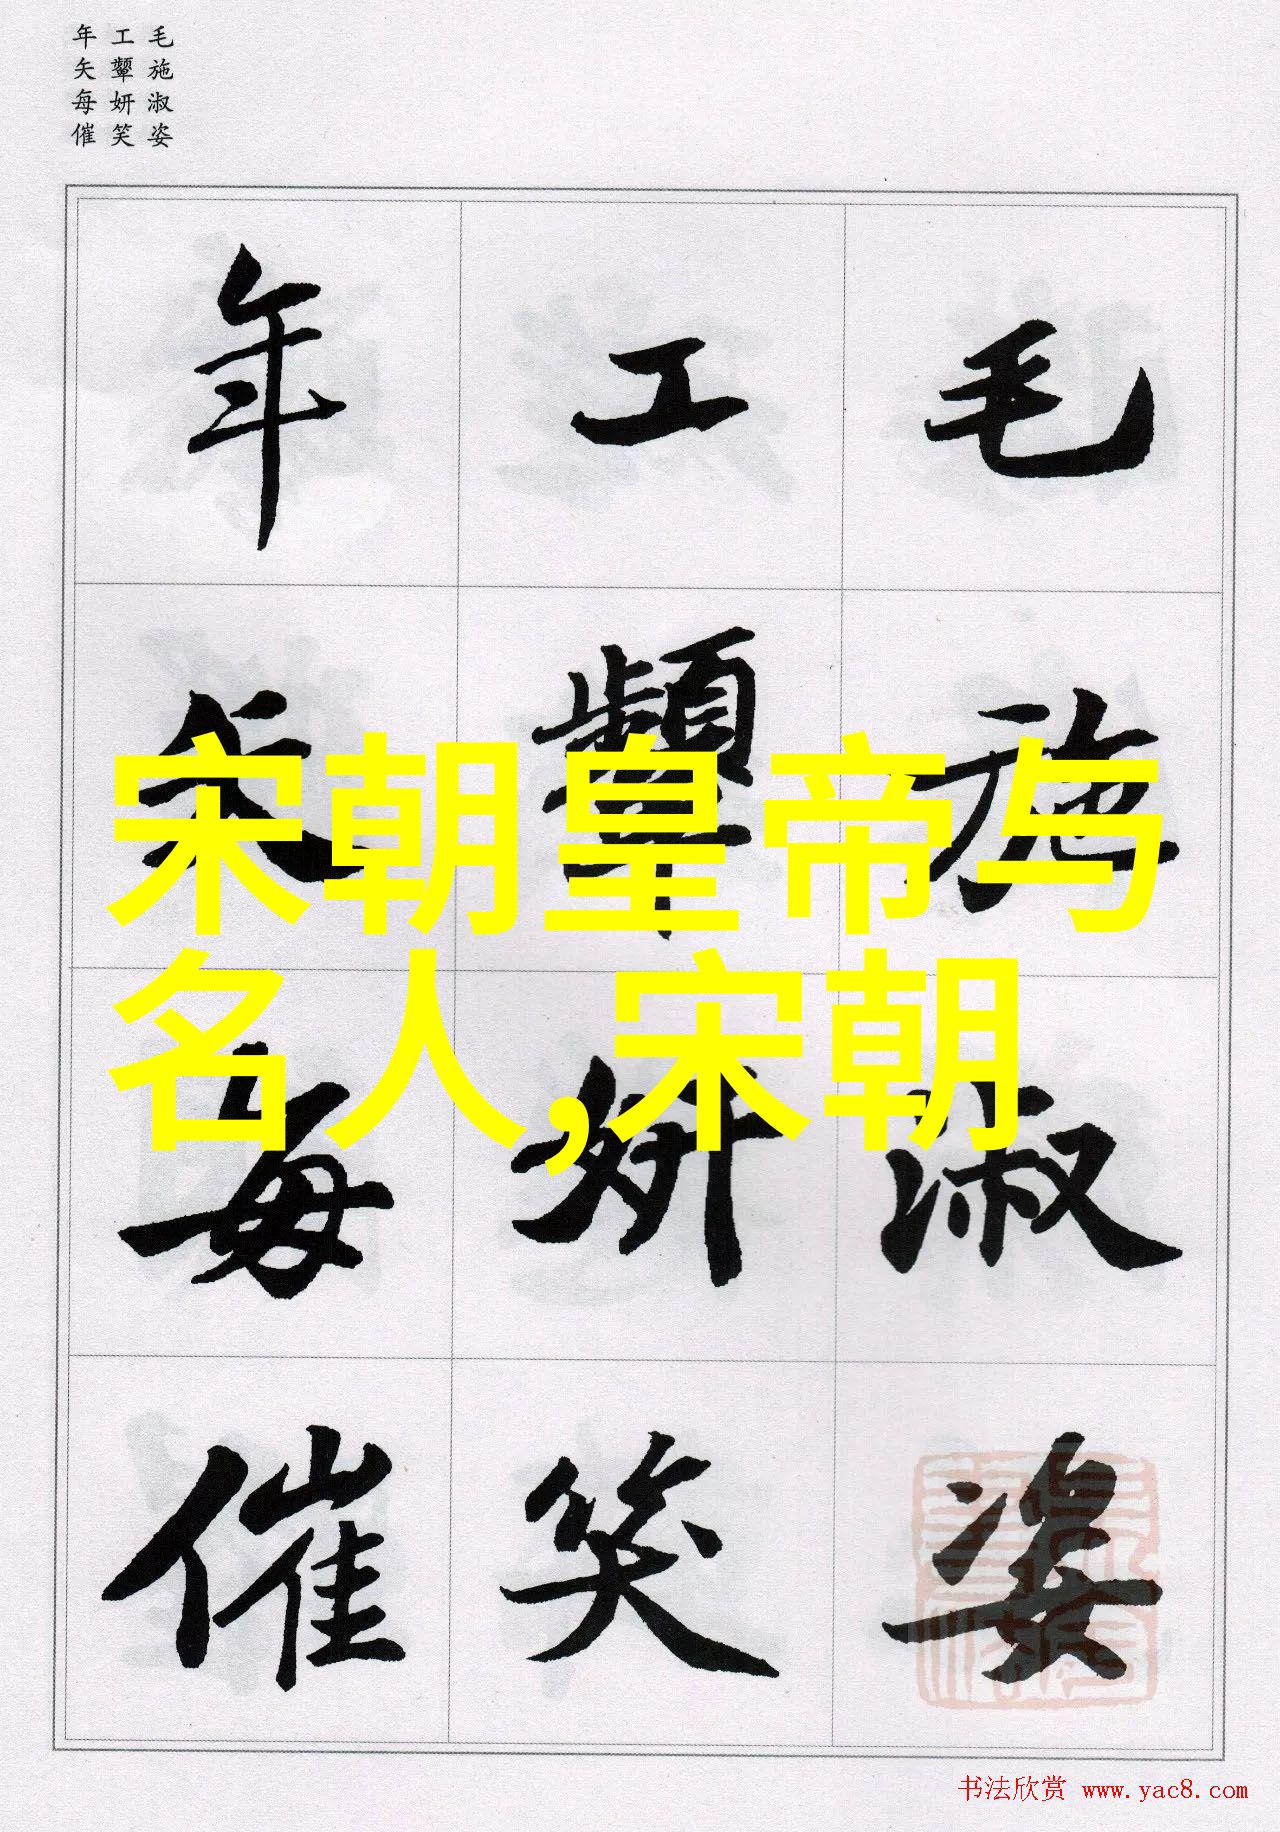 毛施淑姿
工颦妍笑
年矢每催
毛施淑姿
工颦妍笑
年矢每催
宋朝皇帝与
名人,宋朝
书法欣赏 www.yac8.com